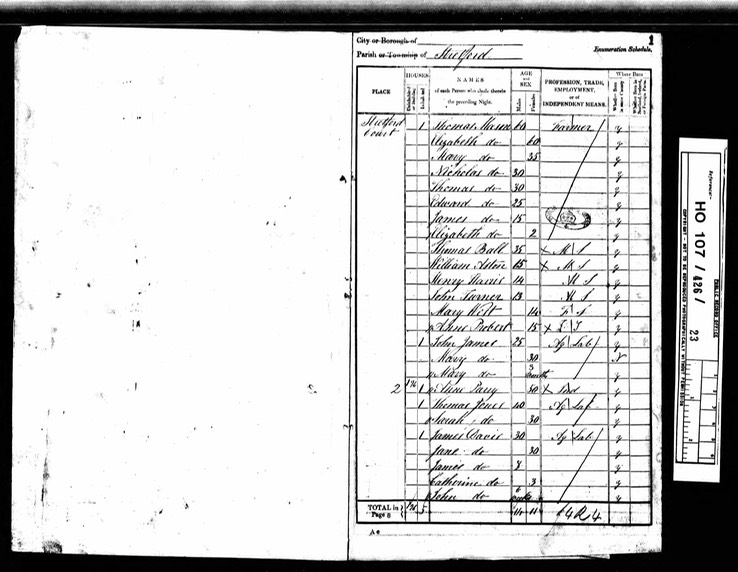 1
City or Borough of
Parish or Township of Stretford
Enumeration Schedule.
PLACE
HOUSES
Uninhabited or Building
Inhabited
NAMES
of each Person who abode therein
the preceding Night.
AGE
and
SEX
Males
Females
PROFESSION, TRADE,
EMPLOYMENT,
or of
INDEPENDENT MEANS.
Where Born
Whether Born in same County
Whether Born in Scotland, Ireland, or Foreign Parts.
Stretford 1 Thomas 60 Farmer y
Court Elizabeth do 60 y
Mary do 35 y
Nicholas do 30 y
Thomas do 30 y
Edward do 25 y
James do 15 y
Elizabeth do 2 y
Thomas Ball 35 M S y
William Aston 15 M S y
Henry Davis 14 M S y
John Turner 13 M S y
Mary West 14 F S y
Probert 15 y
1 John James 25 Ag Lab y
Mary do 30 N
Mary do 3 months y
2 1 1 Parry 50 y
1 Thomas Jones 40 Ag Lab y
Sarah do 30 y
1 James Davis 30 Ag Lab y
Jane do 30 y
James do y
Catherine do 3 y
John do y
TOTAL in Page 8 5 11
A e
Reference:-
PUBLIC RECORD OFFICE
HO 107 / 426 / 23
COPYRIGHT - NOT TO BE REPRODUCED PHOTOGRAPHICALLY WITHOUT PERMISSION